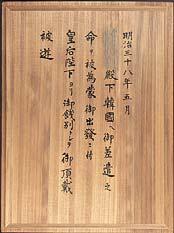 明治三十八年五月
殿下韓國ヘ御差遣之
命ヲ被為蒙御出發ニ付
皇后陛下ヨリ御餞別トシテ御頂戴
被遊